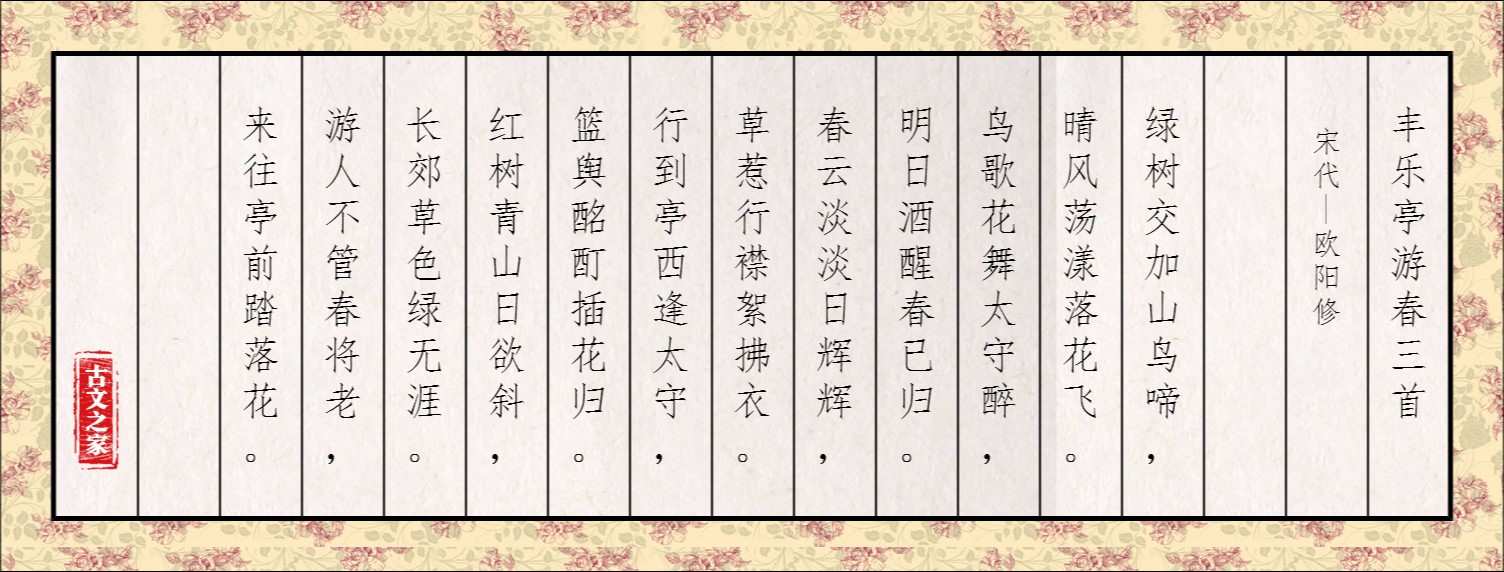 丰乐亭游春三首
宋代—欧阳修
绿树交加山鸟啼，
晴风荡漾落花飞。
鸟歌花舞太守醉，
明日酒醒春已归。
春云淡淡日辉辉，
草惹行襟絮拂衣。
行到亭西逢太守，
篮舆酩酊插花归。
红树青山日欲斜，
长郊草色绿无涯。
游人不管春将老，
来往亭前踏落花。
古文之家